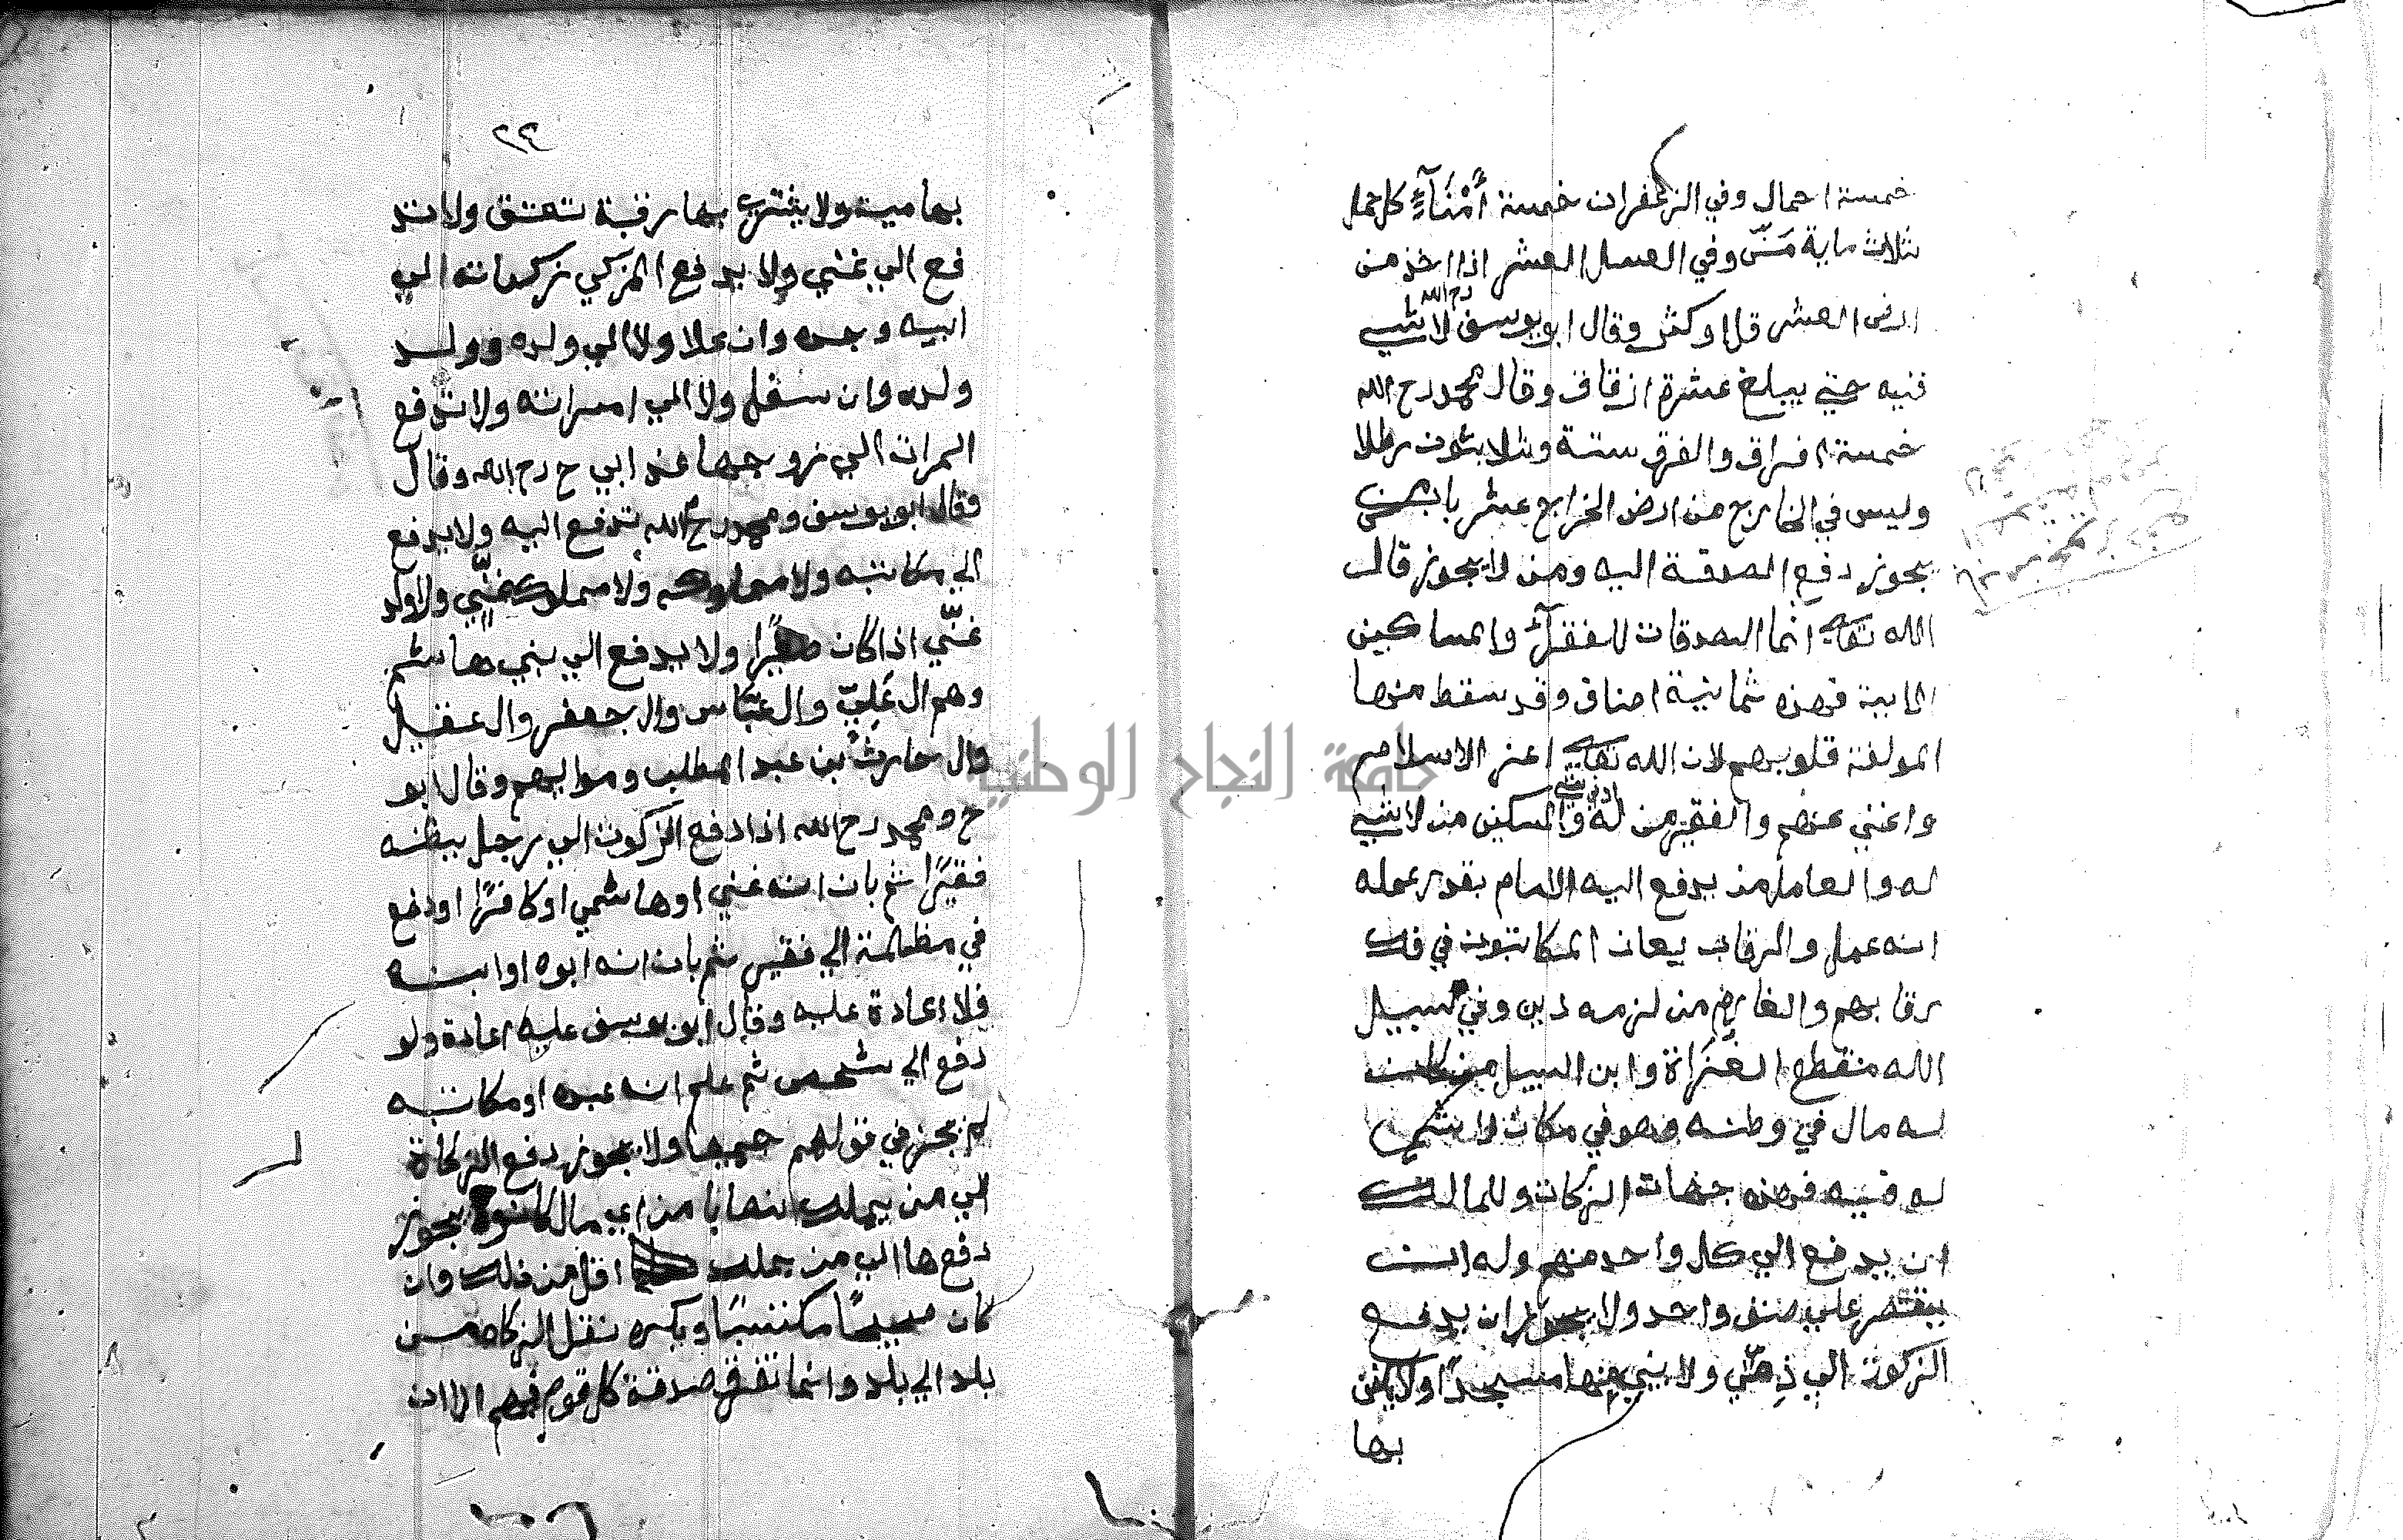 خمسة احمال وفي الزعفران خمسة أمْنَآءٍ كل حمل
ثلاث ماية مَنّ وفي العسل العشر اذا اخذ من
ارض العشر قل او كثر وقال ابو يوسف رح الله لا شيي
فيه حتي يبلغ عشرة ازقاق وقال محمد رح الله
خمسة افراق والفرق ستة وثلاثون رطلا
وليس في الخارج من ارض الخراج عشر باب من
يجوز دفع الصدقة اليه ومن لا يجوز قال
الله تعالي انما الصدقات للفقرآء والمساكين
الاية فهذه ثمانية اصناف وقد سقط منها
المولفة قلوبهم لان الله تعالي اعز الاسلام
واغني عنهم والفقير من له ادني شيي والمسكين من لا شيي
له والعامل من يدفع اليه الامام بقدر عمله
انه عمل والرقاب يعان المكاتبون في فك
رقابهم والغارم من لزمه دين وفي سبيل
الله منقطع الغزاة وابن السبيل من كان
له مال في وطنه وهو في مكان لا شيي
له فيه فهذه جهات الزكات وللمالك
ان يدفع الي كل واحد منهم وله ان
يقتصر علي صنف واحد ولا يجوز ان يدفع
الزكوة الي ذِمّي ولا يبني بها مسجدًا ولا يكفن
بها
٢٣
بها ميت ولا يشتري بها رقبة تعتق ولا تد
فع الي غني ولا يدفع المزكي زكواته الي
ابيه وجده وان علا ولا الي ولده وولد
ولده وان سفل ولا الي امراته ولا تدفع
المراة الي زوجها عند ابي ح رح الله وقال
وقال ابو يوسف ومحمد رح الله تدفع اليه ولا يدفع
الي مكاتبه ولا مملوكه ولا مملوك غنّي ولا ولد
غنّي اذا كان صغيرًا ولا يدفع الي بني هاشم
وهم ال عَلِيّ وال عبّاس وال جعفر وال عقيل
وال حارث بن عبد المطلب ومواليهم وقال ابو
ح ومحمد رح الله اذا دفع الزكوة الي رجل يظنه
فقيرًا ثم بان انه غني او هاشمي او كافرًا او دفع
في مظلمة الي فقير ثم بان انه ابوه او ابنه
فلا اعادة عليه وقال ابو يوسف عليه اعادة ولو
دفع الي شخص ثم علم انه عبده او مكاتبه
لم يجز في قولهم جميعا ولا يجوز دفع الزكاة
الي من يملك نصابا من اي مال كان ويجوز
دفعها الي من يملك اقل من ذلك وان
كان صحيحًا مكتسبًا ويكره نقل الزكاه من
بلد الي بلد وانما تفرق صدقة كل قوم فيهم الا ان
جامعة النجاح الوطنية